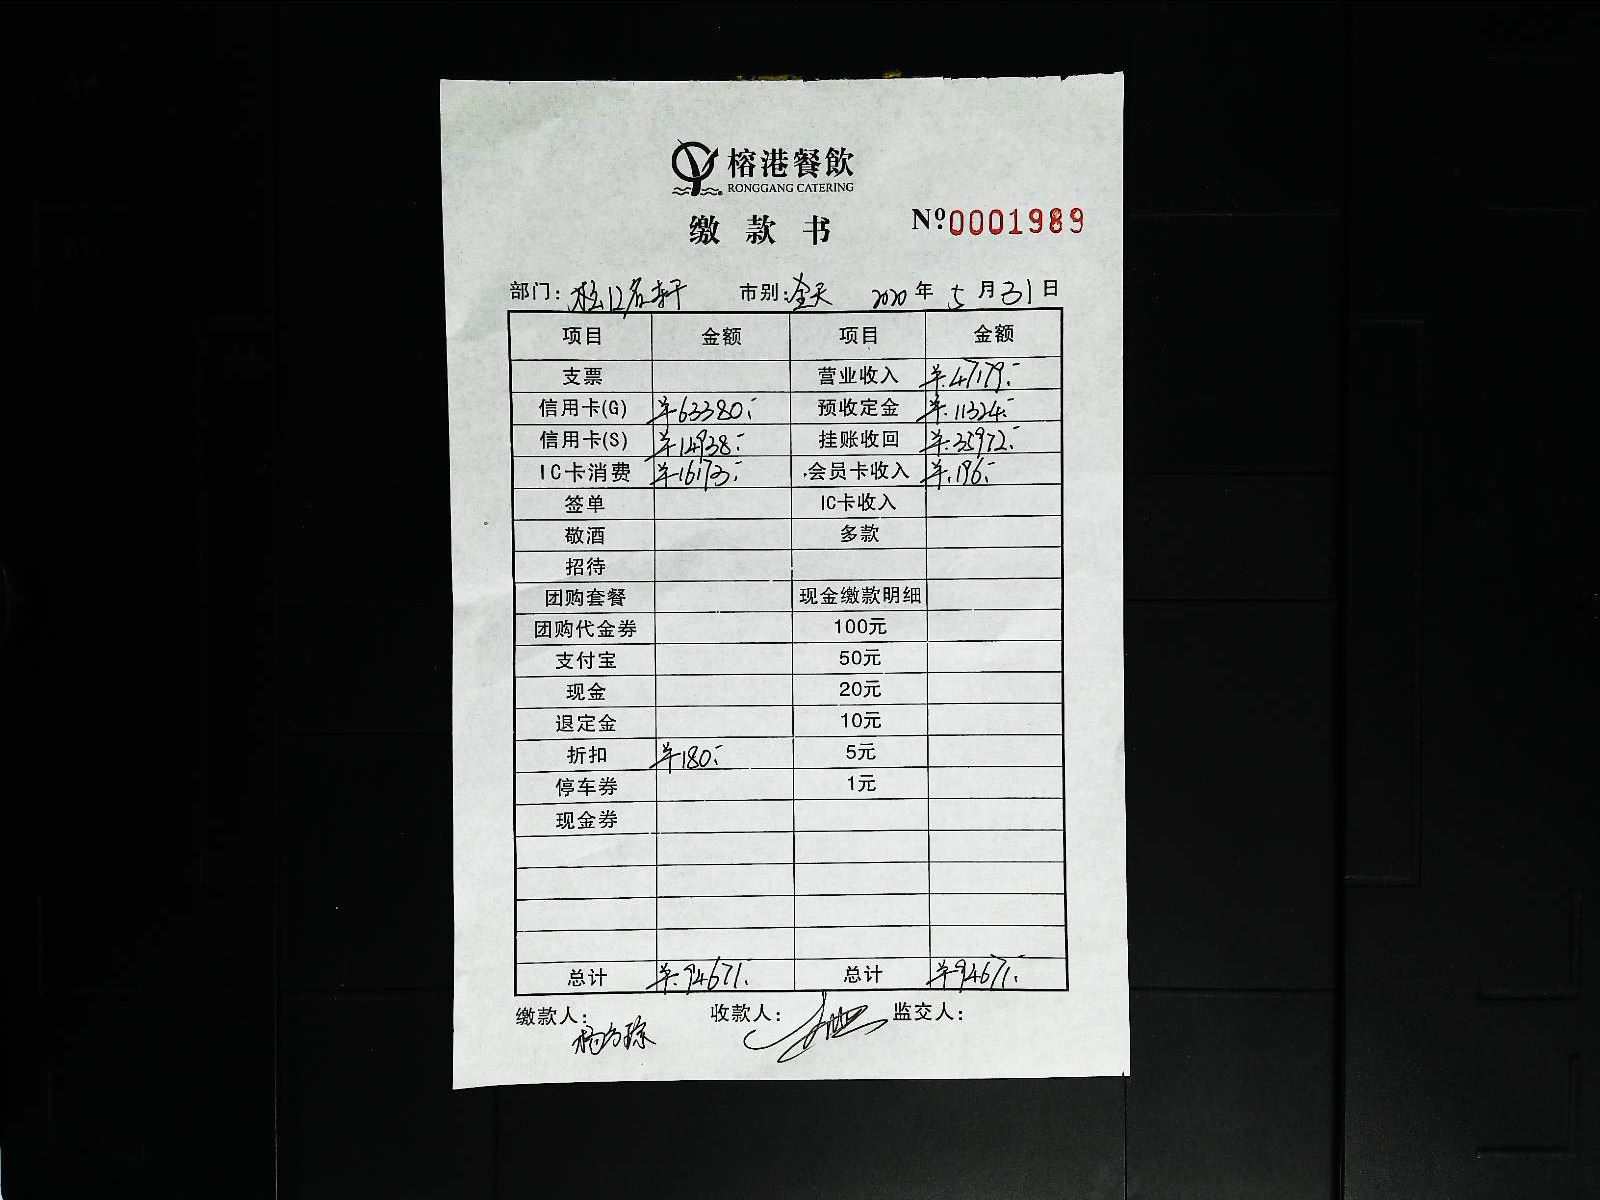 榕港餐飲
RONGGANG CATERING
缴款书 Nº:0001989
部门: 松江名轩 市别: 全天 2020年5月31日
项目 金额 项目 金额
支票 营业收入 ¥:47179:-
信用卡(G) ¥63380:- 预收定金 ¥:11324:-
信用卡(S) ¥14938:- 挂账收回 ¥:35972:-
IC卡消费 ¥16173:- 会员卡收入 ¥:196:-
签单 IC卡收入
敬酒 多款
招待
团购套餐 现金缴款明细
团购代金券 100元
支付宝 50元
现金 20元
退定金 10元
折扣 ¥180:- 5元
停车券 1元
现金券
总计 ¥:94671:- 总计 ¥94671:-
缴款人: 收款人: 监交人: